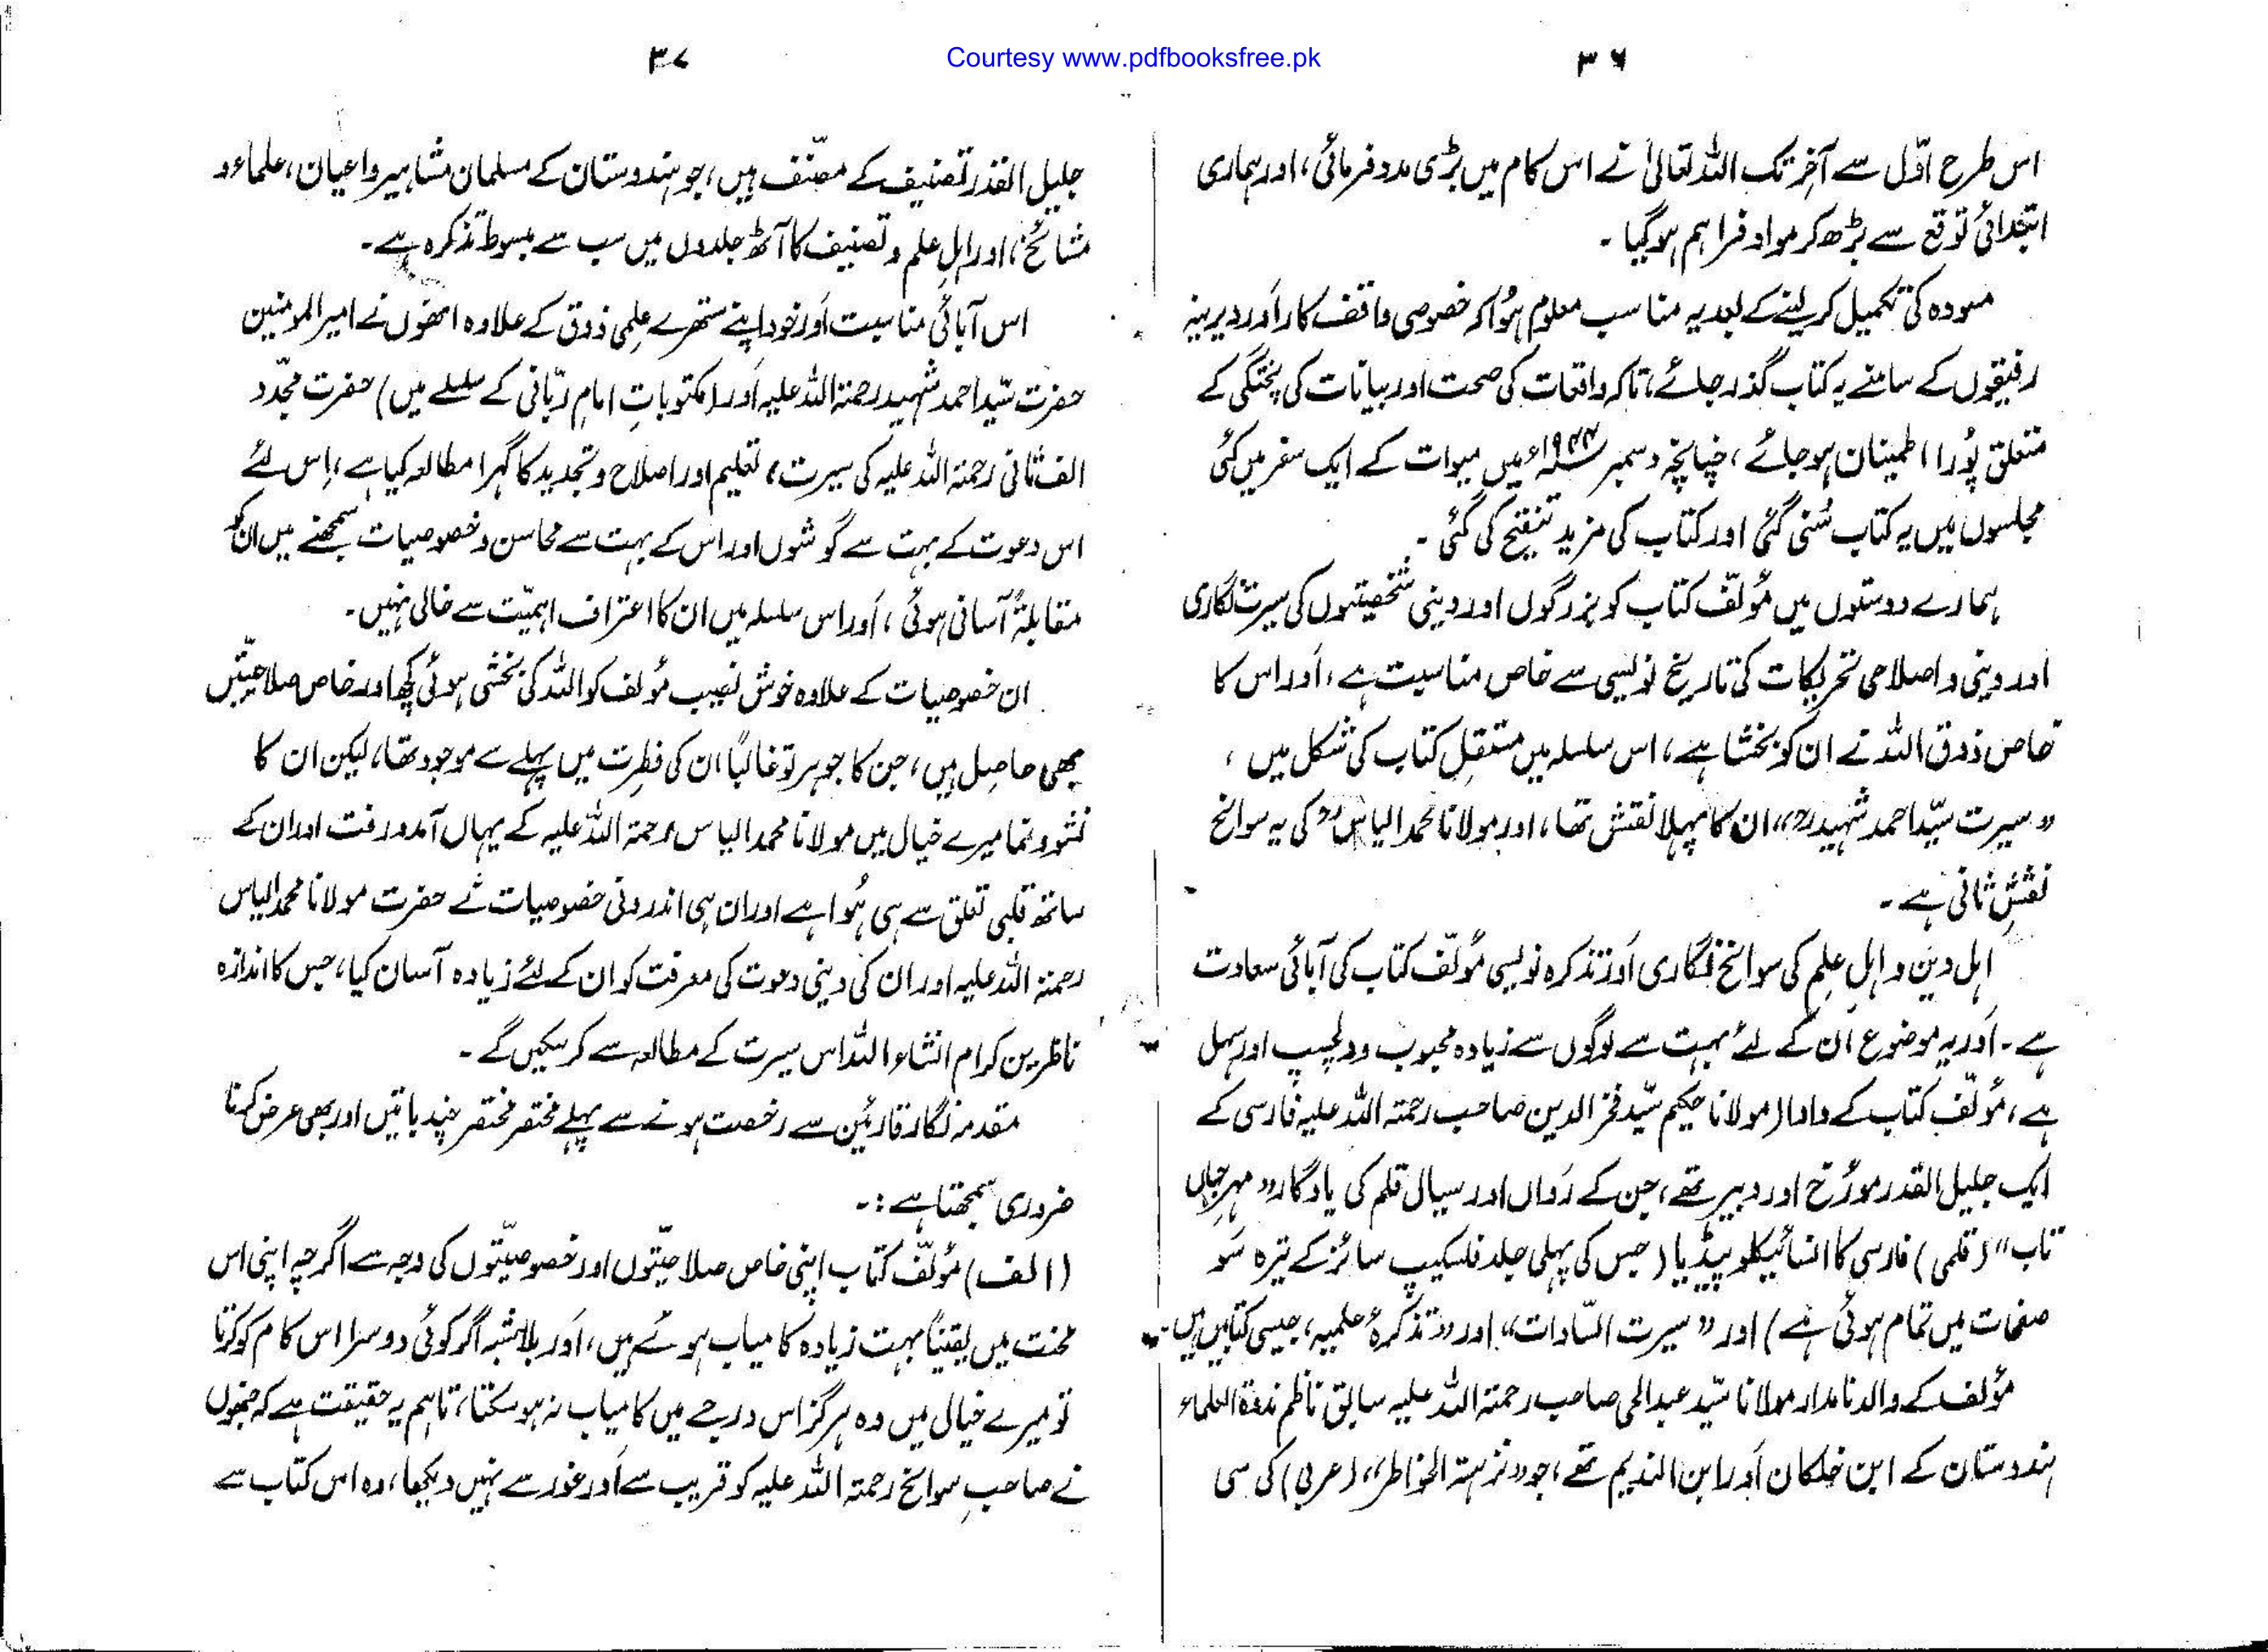 Courtesy www.pdfbooksfree.pk
۳۶
اس طرح اوّل سے آخر تک اللہ تعالیٰ نے اس کام میں بڑی مدد فرمائی، اور ہماری
ابتدائی توقع سے بڑھ کر مواد فراہم ہو گیا۔
مسودہ کی تکمیل کر لینے کے بعد یہ مناسب معلوم ہُوا کہ خصوصی واقف کار اَور دیرینہ
رفیقوں کے سامنے یہ کتاب گذر جائے، تاکہ واقعات کی صحت اور بیانات کی پختگی کے
متعلق پُورا اطمینان ہو جائے، چنانچہ دسمبر ۱۹۴۴ء میں میوات کے ایک سفر میں کئی
مجلسوں میں یہ کتاب سُنی گئی اور کتاب کی مزید تنقیح کی گئی۔
ہمارے دوستوں میں مُولّف کتاب کو بزرگوں اور دینی شخصیتوں کی سیرت نگاری
اور دینی و اصلاحی تحریکات کی تاریخ نویسی سے خاص مناسبت ہے، اَور اس کا
خاص ذوق اللہ نے ان کو بخشا ہے، اس سلسلہ میں مستقِل کتاب کی شکل میں،
”سیرت سیّد احمد شہیدؒ“ ان کا پہلا نقش تھا، اور مولانا محمد الیاسؒ کی یہ سوانح
نقشِ ثانی ہے۔
اہل دین و اہلِ عِلم کی سوانح نگاری اَور تذکرہ نویسی مُولّف کتاب کی آبائی سعادت
ہے۔ اَور یہ موضوع ان کے لئے بہت سے لوگوں سے زیادہ محبوب و دلچسپ اور سہل
ہے، مُولّف کتاب کے دادا (مولانا حکیم سیّد فخر الدین صاحب رحمتہ اللہ علیہ فارسی کے
ایک جلیل القدر مورّخ اور دبیر تھے، جن کے رَواں اور سیال قلم کی یادگار ”مہرِ جہاں
تاب“ (قلمی) فارسی کا انسائیکلوپیڈیا (جس کی پہلی جلد فلسکیپ سائز کے تیرہ سَو
صفحات میں تمام ہوئی ہے) اور ”سیرت السّادات“ اور ”تذکرۂ علمیہ، جیسی کتابیں ہیں۔
مؤلف کے والد نامدار مولانا سیّد عبد الحی صاحب رحمتہ اللہ علیہ سابق ناظم ندوۃ العلماء
ہندوستان کے ابن خلکان اَور ابن الندیم تھے، جو ”نزہتہ الخواطر“ (عربی) کی سی
۳۷
جلیل القدر تصنیف کے مصنّف ہیں، جو ہندوستان کے مسلمان مشاہیر و اعیان، علماء و
مشائخ، اور اہلِ علم و تصنیف کا آٹھ جلدوں میں سب سے مبسوط تذکرہ ہے۔
اس آبائی مناسبت اَور خود اپنے ستھرے عِلمی ذوق کے علاوہ انھوں نے امیر المومنین
حضرت سیّد احمد شہید رحمتہ اللہ علیہ اَور (مکتوباتِ امام ربّانی کے سلسلے میں) حضرت مجدّد
الف ثانی رحمتہ اللہ علیہ کی سیرت، تعلیم اور اصلاح و تجدید کا گہرا مطالعہ کیا ہے، اِس لئے
اس دعوت کے بہت سے گوشوں اور اس کے بہت سے محاسن و خصوصیات سمجھنے میں ان کو
مقابلۃً آسانی ہوئی، اَور اس سلسلہ میں ان کا اعتراف اہمیّت سے خالی نہیں۔
ان خصوصیات کے علاوہ خوش نصیب مُولف کو اللہ کی بخشی ہوئی کچھ اور خاص صلاحیّتیں
بھی حاصِل ہیں، جن کا جوہر تو غالبًا ان کی فطرت میں پہلے سے موجود تھا، لیکن ان کا
نشو و نما میرے خیال میں مولانا محمد الیاس رحمتہ اللہ علیہ کے یہاں آمد و رفت اور ان کے
ساتھ قلبی تعلق سے ہی ہُوا ہے اور ان ہی اندرونی خصوصیات نے حضرت مولانا محمد الیاس
رحمتہ اللہ علیہ اور ان کی دینی دعوت کی معرفت کو ان کے لئے زیادہ آسان کیا، جس کا اندازہ
ناظرین کرام انشاء اللہ اس سیرت کے مطالعہ سے کر سکیں گے۔
مقدمہ نگار قارئین سے رخصت ہونے سے پہلے مختصر مختصر چند باتیں اور بھی عرض کرنا
ضروری سمجھتا ہے:۔
(الف) مُولّف کتاب اپنی خاص صلاحیّتوں اور خصوصیّتوں کی وجہ سے اگرچہ اپنی اس
محنت میں یقینًا بہت زیادہ کامیاب ہوئے ہیں، اَور بلاشبہ اگر کوئی دوسرا اس کام کو کرتا
تو میرے خیال میں وہ ہرگز اس درجے میں کامیاب نہ ہو سکتا، تاہم یہ حقیقت ہے کہ جنھوں
نے صاحبِ سوانح رحمتہ اللہ علیہ کو قریب سے اَور غور سے نہیں دیکھا، وہ اس کتاب سے